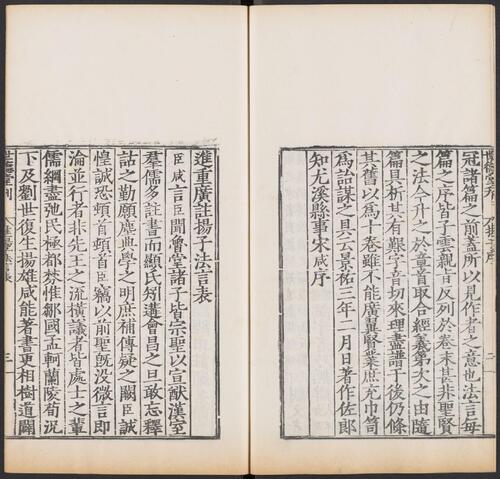 冠諸篇之前蓋所以見作者之意也法言每
篇之序皆子雲親旨反列於卷末甚非聖賢
之法今升之於章首取合經義第次之由隨
篇具析其有艱字音切來理盡譜于後仍條
其舊以為十卷雖不能廣翼賢業庶充巾笥
為詒謀之具云景祐三年二月日著作佐郎
知尤溪縣事宋咸序
進重廣註揚子法言表
臣咸言臣聞會堂諸子皆宗聖以宣猷漢室
羣儒多註書而顯氏矧遘會昌之旦敢忘釋
詁之勤願塵典學之明庶補傳疑之闕臣誠
惶誠恐頓首頓首臣竊以前聖旣没微言即
淪並行者非先王之流橫議者皆處士之輩
儒綱盡弛民極都棼惟鄒國孟軻蘭陵荀況
下及劉世復生揚雄咸能著書更相樹道闢